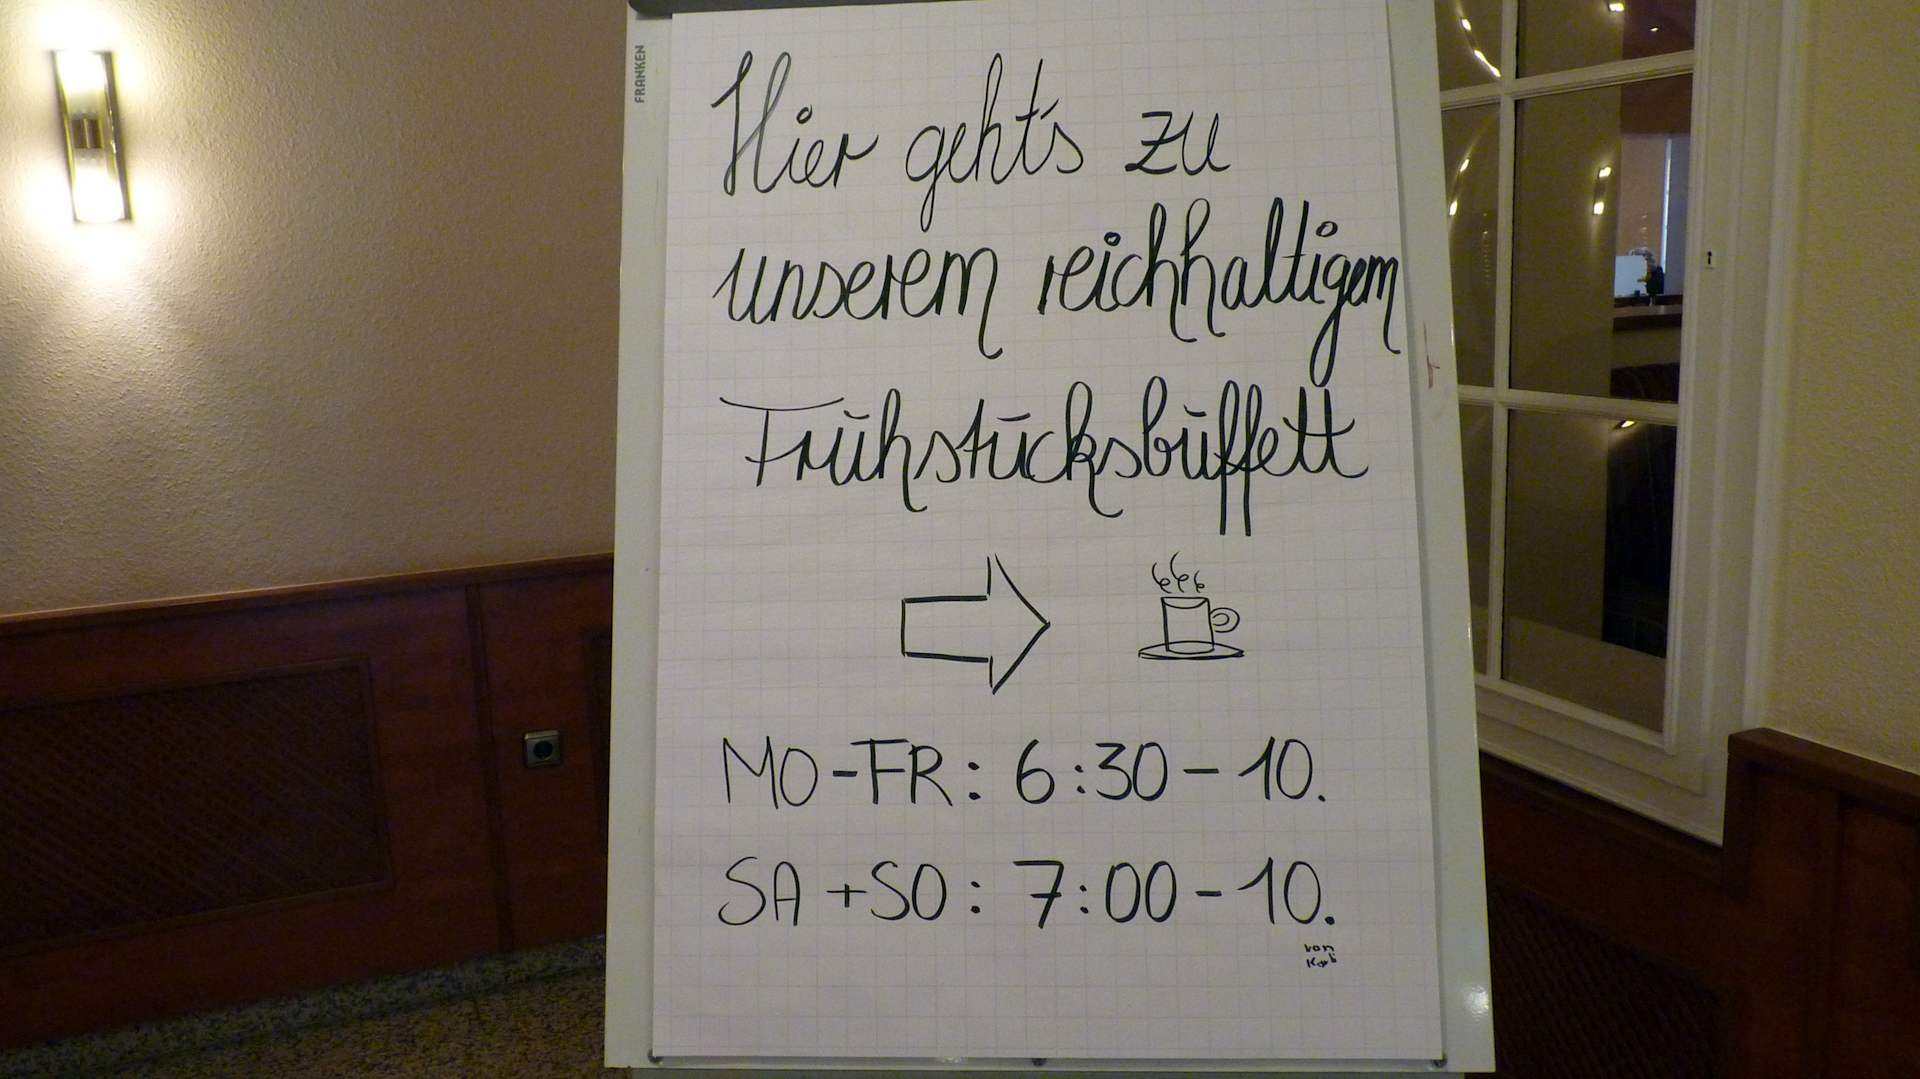 FRANKEN
Hier geht's zu
unserem reichhaltigem
Frühstücksbüffett
MO-FR: 6:30 - 10.
SA + SO: 7:00 - 10.
von